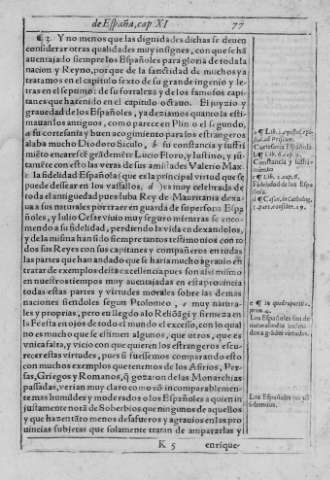 de España, cap XI 77
¶ 3. Y no menos que las dignidades dichas se deuen
considerar otras qualidades muy insignes, con que se há
auentajado siempre los Españoles para gloria de toda la
nacion y Reyno, porque de la sanctidad de muchos ya
tratamos en el capitulo sexto de su grande ingenio y le-
tras en el septimo: de su fortaleza y de los famosos capi-
tanes que ha tenido en el capitulo octauo. El joyzio y
grauedad de los Españoles, ya deziamos quanto la esti-
mauan los antiguos, como parece en Plinio el segundo,
a su cortesania y buen acogimiento para los estrangeros
alaba mucho Diodoro Siculo, su constancia y suffri
miéto encarescé grádeméte Lucio Floro, y Iustino, y jú-
tamẽte con esto las veras de sus amistades Valerio Max.
la fidelidad Española (que es la principal virtud que se
puede dessear en los vassallos, ) es muy celebrada de
toda el antiguedad pues Iuba Rey de Mauritania dexa-
ua a sus naturales por traer en guarda de su persona Espa
ñoles, y Iulio Cesar viuio muy seguro mientras se enco-
mendo a su fidelidad, perdiendo la vida en dexandolos,
y de la misma han sido siempre tantos testimonios con to
dos sus Reyes con sus capitanes y compañeros en todas
las partes que han andado que se haria mucho agrauio en
tratar de exemplos desta excellencia pues son assi mismo
en nuestros tiempos muy auentajadas en esta prouincia
todas estas partes y virtudes morales sobre las demas
naciones siendoles segun Ptolomeo, e muy natura-
les y proprias, pero en llegdo alo Reliósági y firmeza en
la Feesta en ojos de todo el mundo el excesso, con lo qual
no es mucho que se estimen algunos, que otros, que es
vnica falta, y vicio con que quieren los estrangeros escu-
recer estas virtudes, pues si fuessemos comparando esto
con muchos exemplos que tenemos de los Asirios, Per-
sas, Griegos y Romanos, q̃ gozaron de las Monarchias
passadas, verian muy claro como só incomparablemen-
te mas humildes y moderados los Españoles a quien in
justamente notá de Soberbios que ningunos de aquellos
y que hazen táto menos desafueros y agrauios en las pro
uincias subietas que solamente tratan de ampararlas y
K 5 enrique-
Cortesania Española
Constancia y suffri-
miento
Fidelidad de los Espa
ñoles
e ¶ In quadriparti-
Los Españoles son de
Los Españoles no só